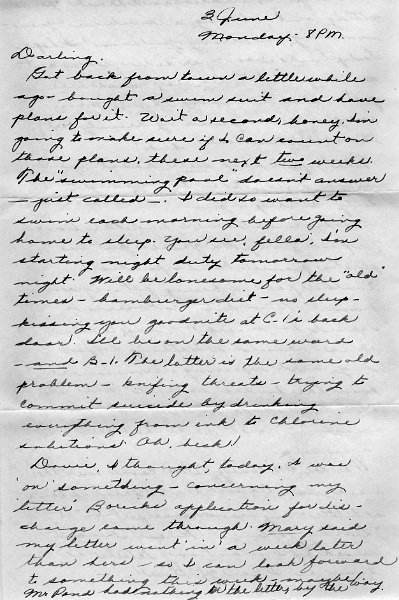 3 June
Monday - 8 P.M.
Darling,
Got back from town a little while
ago - bought a swim suit and have
plans for it. Wait a second, honey, I'm
going to make sure if I can count on
those plans, these next two weeks.
The "swimming pool" doesn't answer
- just called -. I did so want to
swim each morning before going
home to sleep. You see, fella, I'm
starting night duty tomorrow
night. Will be lonesome for the "old"
times - hamburger diet - no sleep -
kissing you goodnite at C-1's back
door. I'll be on the same ward
- and B-1. The latter is the same old
problem - knifing threats - trying to
commit suicide by drinking
everything from ink to Chlorine
solutions. Oh, heck!
I thought, today, I was
'on' something - concerning my
'letter'. application for dis-
charge came through. Mary said
my letter went 'in' a week later
than hers - so I can look forward
to something this week - maybe!
Mr Pond had nothing in the letter by the way.